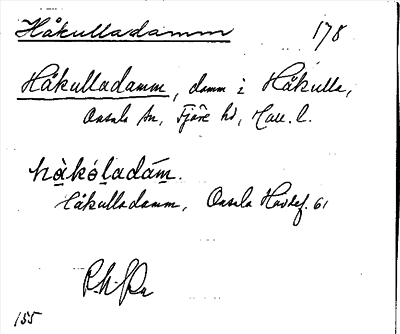 Håkulladamm 178
Håkulladamm, damm i Håkulla,
Onsala sn, Fjäre hd, Hall. l.
hàkóladám.
Håkulladamm, Onsala Hävdef. 61
155